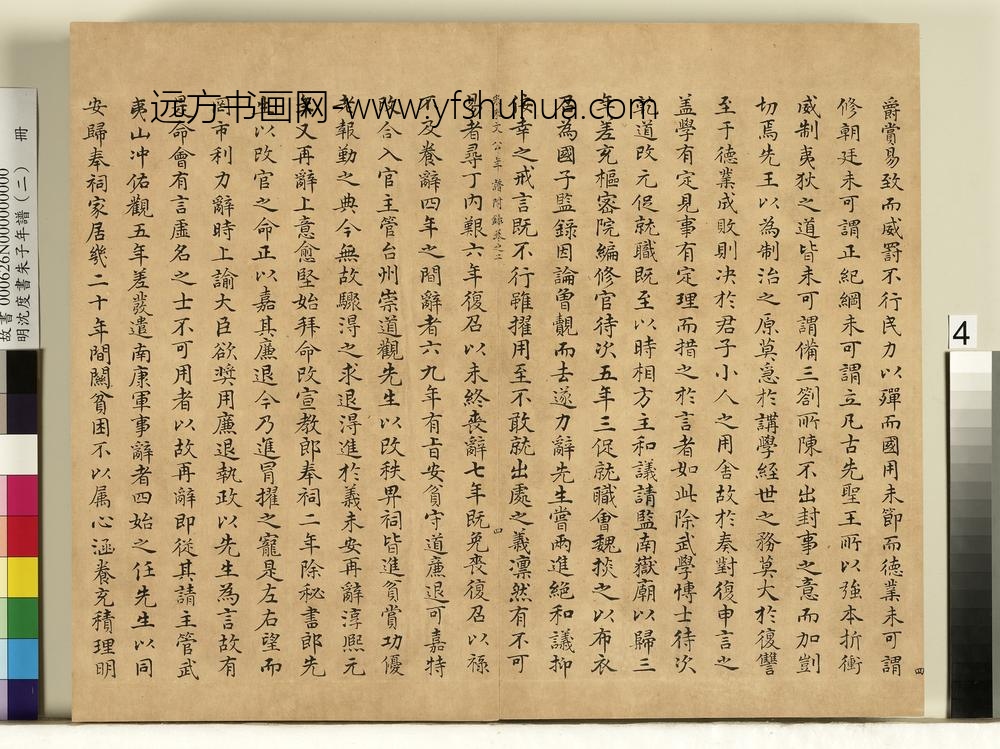 远方书画网-www.yfshuhua.com
爵賞易致而威罰不行民力以殫而國用未節而徳業未可謂
修朝廷未可謂正紀綱未可謂立凡古先聖王所以強本折衝
威制夷狄之道皆未可謂備三劄所陳不出封事之意而加剴
切焉先王以為制治之原莫急於講學經世之務莫大於復讐
至于德業成敗則決於君子小人之用舍故於奏對復申言之
盖學有定見事有定理而措之於言者如此除武學博士待次
道改元促就職既至以時相方主和議請監南嶽廟以歸三
年差充樞密院編修官待次五年三促就職會魏掞之以布衣
召為國子監錄因論曾覿而去遂力辭先生嘗兩進絕和議抑
幸之戒言既不行雖擢用至不敢就出處之義凛然有不可
文公年譜附錄卷之二
四
易者尋丁內艱六年復召以未終喪辭七年既免喪復召以祿
不及養辭四年之間辭者六九年有旨安貧守道廉退可嘉特
改合入官主管台州崇道觀先生以改秩畀祠皆進賢賞功優
老報勤之典今無故驟得之求退得進於義未安再辭淳熙元
年又再辭上意愈堅始拜命改宣教郎奉祠二年除秘書郎先
生以改官之命正以嘉其廉退今乃進冒擢之寵是左右望而
罔市利力辭時上諭大臣欲奬用廉退執政以先生為言故有
是命會有言虛名之士不可用者以故再辭即從其請主管武
夷山冲佑觀五年差發遣南康軍事辭者四始之任先生以同
安歸奉祠家居幾二十年間關貧困不以属心涵養充積理明
四
4
故書 000626N000000000
明沈度書朱子年譜(二) 冊